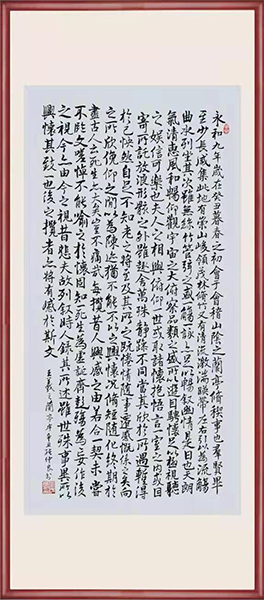 永和九年歲在癸丑暮春之初會于會稽山陰之蘭亭脩稧事也群賢畢
至少長咸集此地有崇山峻領茂林脩竹又有清流激湍映帶左右引以為流觴
曲水列坐其次雖無絲竹管弦之盛一觴一詠亦足以暢叙幽情是日也天朗
氣清惠風和暢仰觀宇宙之大俯察品類之盛所以遊目騁懷足以極視聽
之娛信可樂也夫人之相與俯仰一世或取諸懷抱悟言一室之內或因
寄所託放浪形骸之外雖趣舍萬殊靜躁不同當其欣於所遇暫得
於己怏然自足不知老之將至及其所之既惓情隨事遷感慨係之矣向
之所欣俛仰之閒以為陳迹猶不能不以之興懷況脩短隨化終期於
盡古人云死生亦大矣豈不痛哉每攬昔人興感之由若合一契未嘗
不臨文嗟悼不能喻之於懷固知一死生為虛誕齊彭殤為妄作後
之視今亦由今之視昔悲夫故列叙時人錄其所述雖世殊事異所以
興懷其致一也後之攬者亦將有感於斯文
王羲之蘭亭序